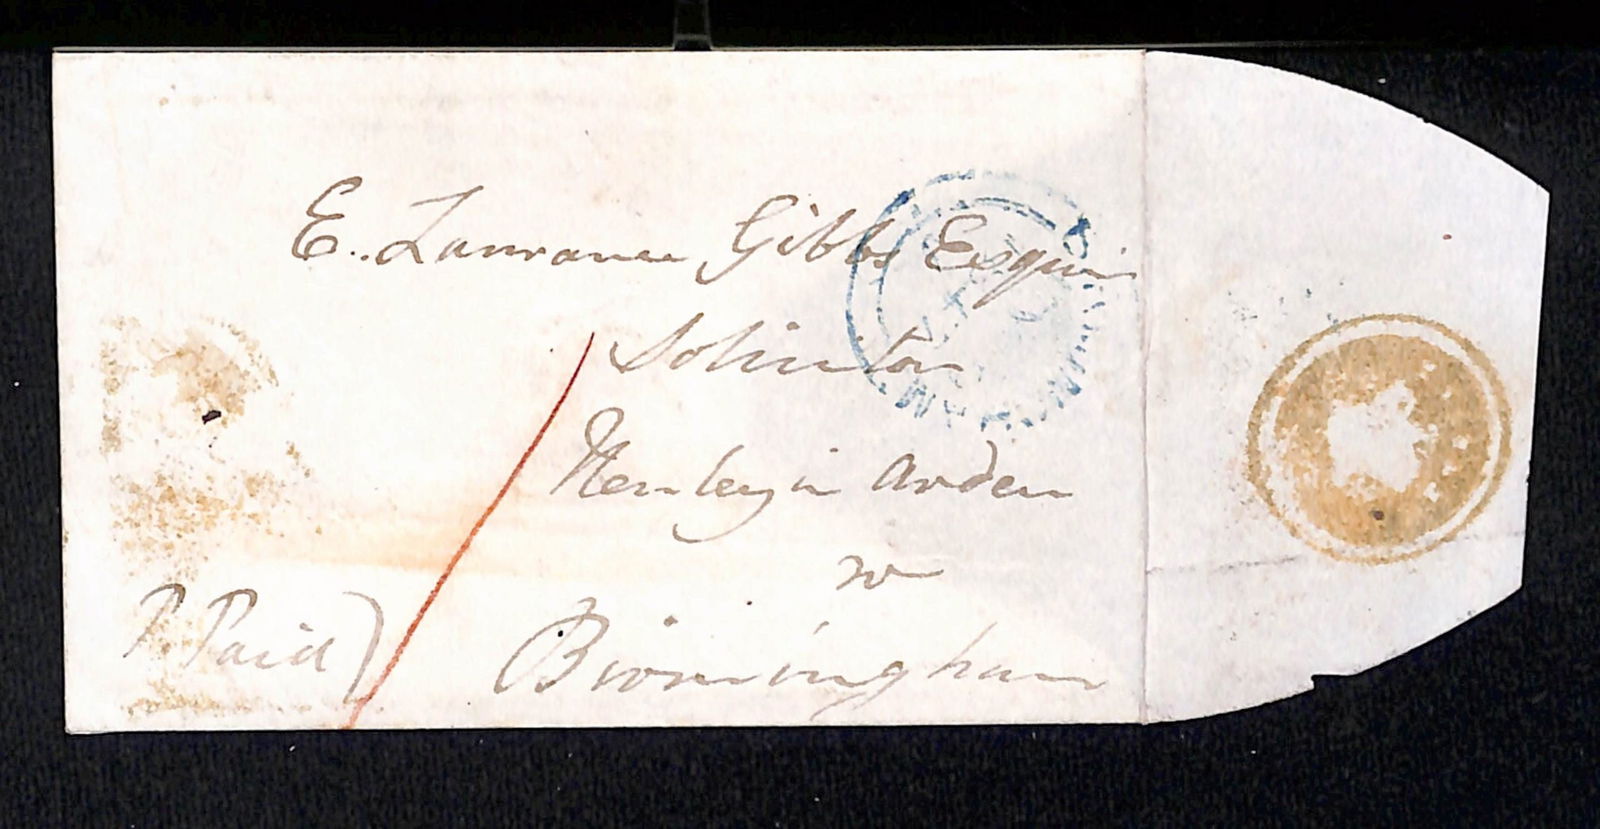 E. Lawrance Gibbs Esquire
Solicitor
Henley in Arden
nr
Birmingham
P. Paid)